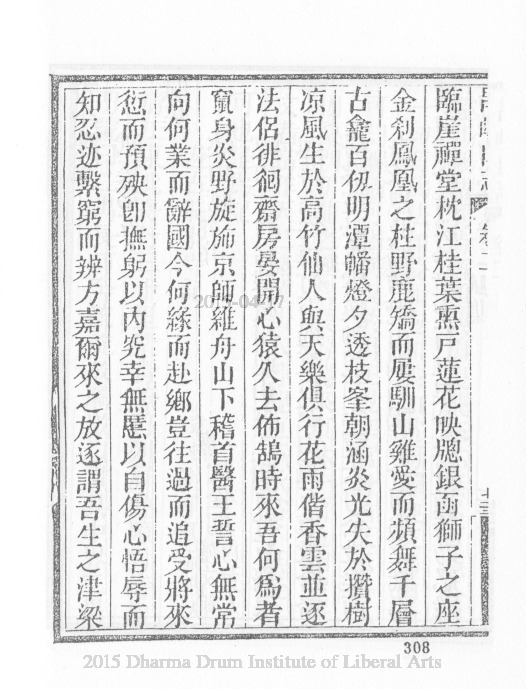 臨崖禪堂枕江桂葉熏戸蓮花映牕銀函獅子之座
金刹鳳凰之柱野鹿矯而屢馴山雞愛而頻舞千層
古龕百仭明潭幡燈夕透枝峯朝涵炎光失於攢樹
凉風生於高竹仙人與天樂俱行花雨偕香雲並逐
法侣徘徊齋房晏開心猿久去佈鵠時來吾何爲者
竄身炎野旋旆京師維舟山下稽首醫王誓心無常
向何業而辭國今何緣而赴鄉豈往過而追受將來
愆而預殃卽撫躬以内究幸無慝以自傷心悟辱而
知忍迹繫窮而辨方嘉爾來之放逐謂吾生之津梁
308
2015 Dharma Drum Institute of Liberal Arts